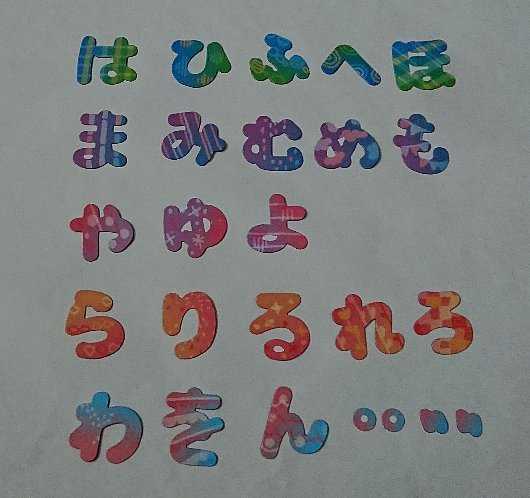 はひふへほ
まみむめも
やゆよ
らりるれろ
わをん゜゜゛゛